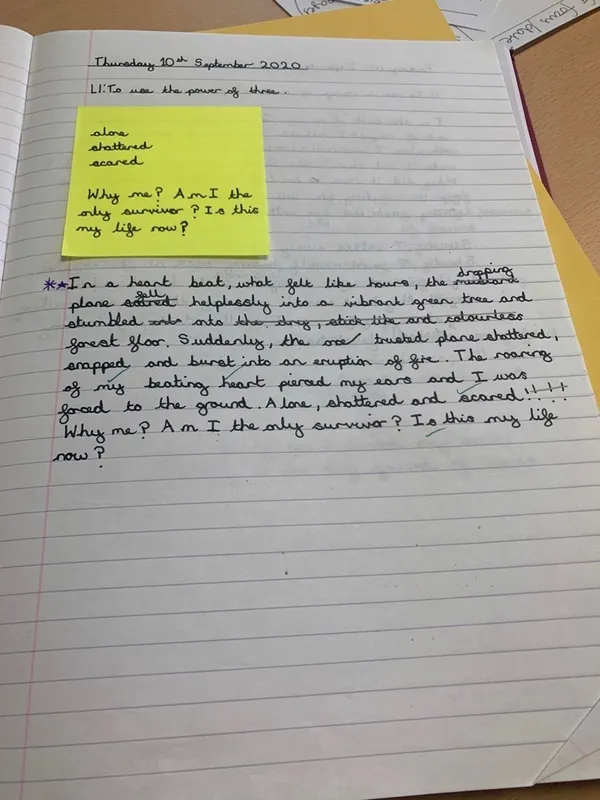 Thursday 10th September 2020
LI: To use the power of three.
alone
shattered
scared
Why me? Am I the
only survivor? Is this
my life now?
**In a heart beat, what felt like hours, the dropping
plane fell helplessly into a vibrant green tree and
stumbled onto the dry, stick like and colourless
forest floor. Suddenly, the one trusted plane shattered,
snapped and burst into an eruption of fire. The roaring
of my beating heart pierced my ears and I was
forced to the ground. Alone, shattered and scared!!!!
Why me? Am I the only survivor? Is this my life
now?